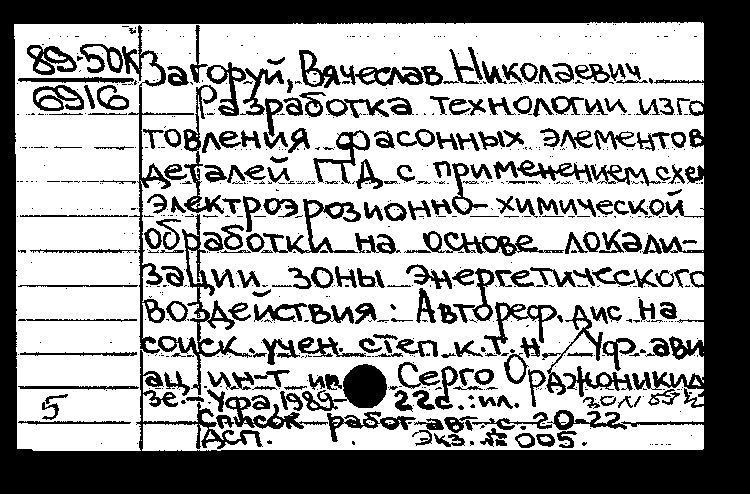 89-50К
6916
Загоруй, Вячеслав Николаевич.
Разработка технологии изго
товления фасонных элементов
деталей ГТД с применением схем
электроэрозионно-химической
обработки на основе локали-
зации зоны энергетического
воздействия : Автореф. дис на
соиск. учен. степ к.т.н Уф. ави
ац. ин-т им Серго Орджоникид
зе.- Уфа, 1989.- 22с. : ил.
5
Список работ авт.: с. 20-22.
ДСП. Экз. № 005.